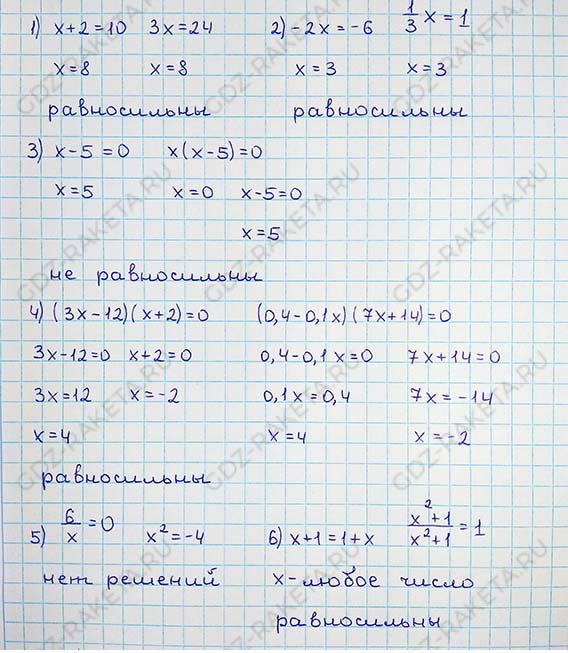 1) x+2=10 3x=24 2) -2x=-6 1/3 x=1
x=8 x=8 x=3 x=3
равносильны равносильны
3) x-5=0 x(x-5)=0
x=5 x=0 x-5=0
x=5
не равносильны
4) (3x-12)(x+2)=0 (0,4-0,1x)(7x+14)=0
3x-12=0 x+2=0 0,4-0,1x=0 7x+14=0
3x=12 x=-2 0,1x=0,4 7x=-14
x=4 x=4 x=-2
равносильны
5) 6/x=0 x²=-4 6) x+1=1+x x²+1/x²+1=1
нет решений x-любое число
равносильны
GDZ-RAKETA.RU